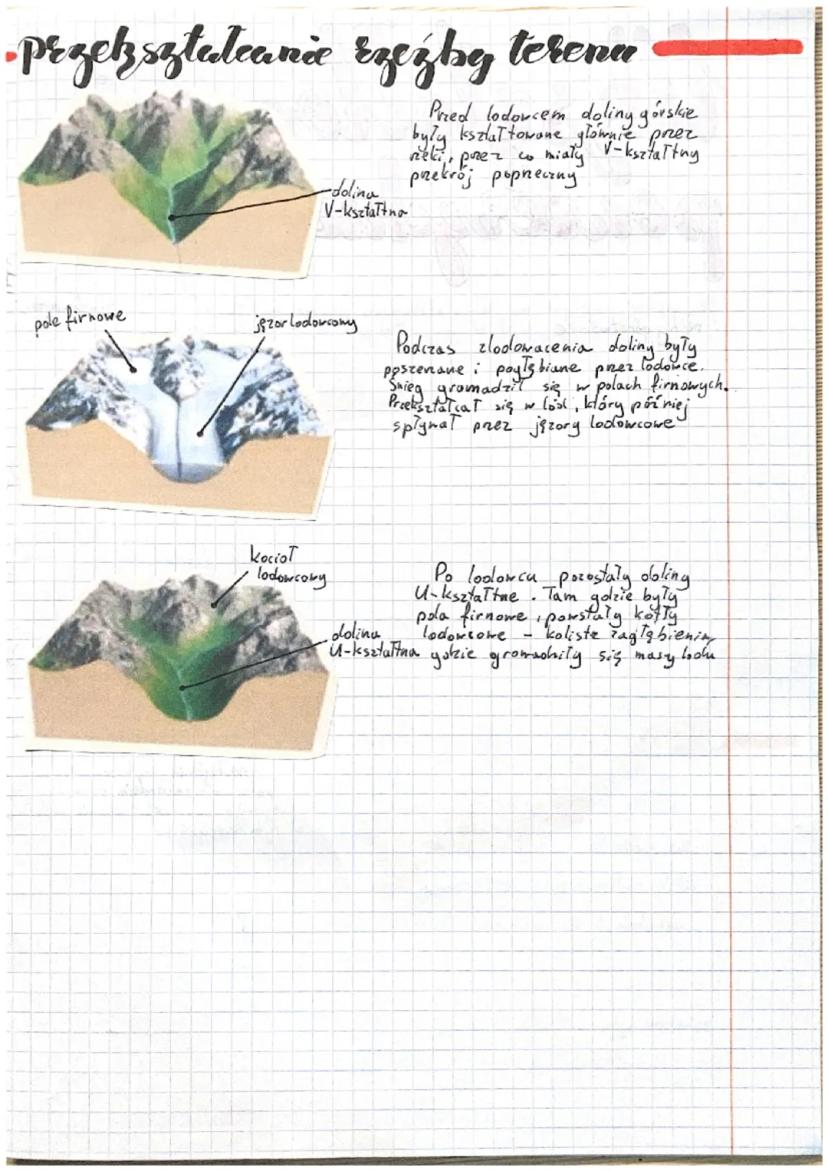 przekształcanie rzeźby terenu
Przed lodowcem doliny górskie
były kształtowane głównie przez
rzeki, przez co miały V-kształtny
przekrój poprzeczny
dolina
V-kształtna
pole firnowe
jęzor lodowcowy
Podczas zlodowacenia doliny były
poszerzane i pogłębiane przez lodowce.
Śnieg gromadził się w polach firnowych.
Przekształcał się w lód, który później
spływał przez jęzory lodowcowe
kocioł
lodowcowy
dolina
U-kształtna
Po lodowcu pozostały doliny
U-kształtne. Tam gdzie były
pola firnowe, powstały kotły
lodowcowe - koliste zagłębienia,
gdzie gromadziły się masy lodu